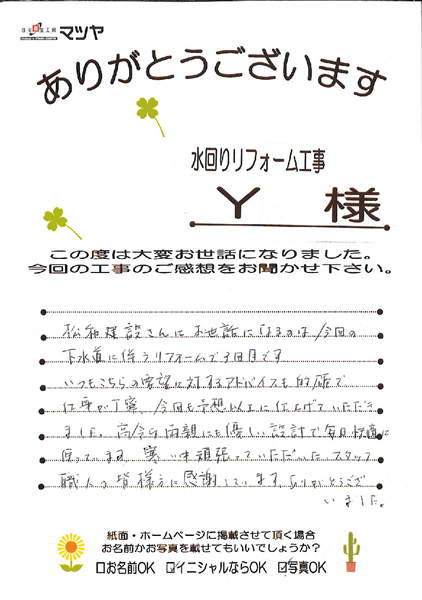 マツヤ
ありがとうございます
水回りリフォーム工事
Y 様
この度は大変お世話になりました。
今回の工事のご感想をお聞かせ下さい。
松和建設さんにお世話になるのは、今回の
下水道に伴うリフォームで3回目です
いつもこちらの要望に対するアドバイスも的確で
仕事が丁寧、今回も予想以上に仕上げていただき
ました。高令な両親にも優しい設計で毎日快適に
使っています。寒い中頑張っていただいたスタッフ
職人の皆様方に感謝しています。ありがとうござ
いました。
紙面・ホームページに掲載させて頂く場合
お名前かお写真を載せてもいいでしょうか?
□お名前OK ☑イニシャルならOK ☑写真OK